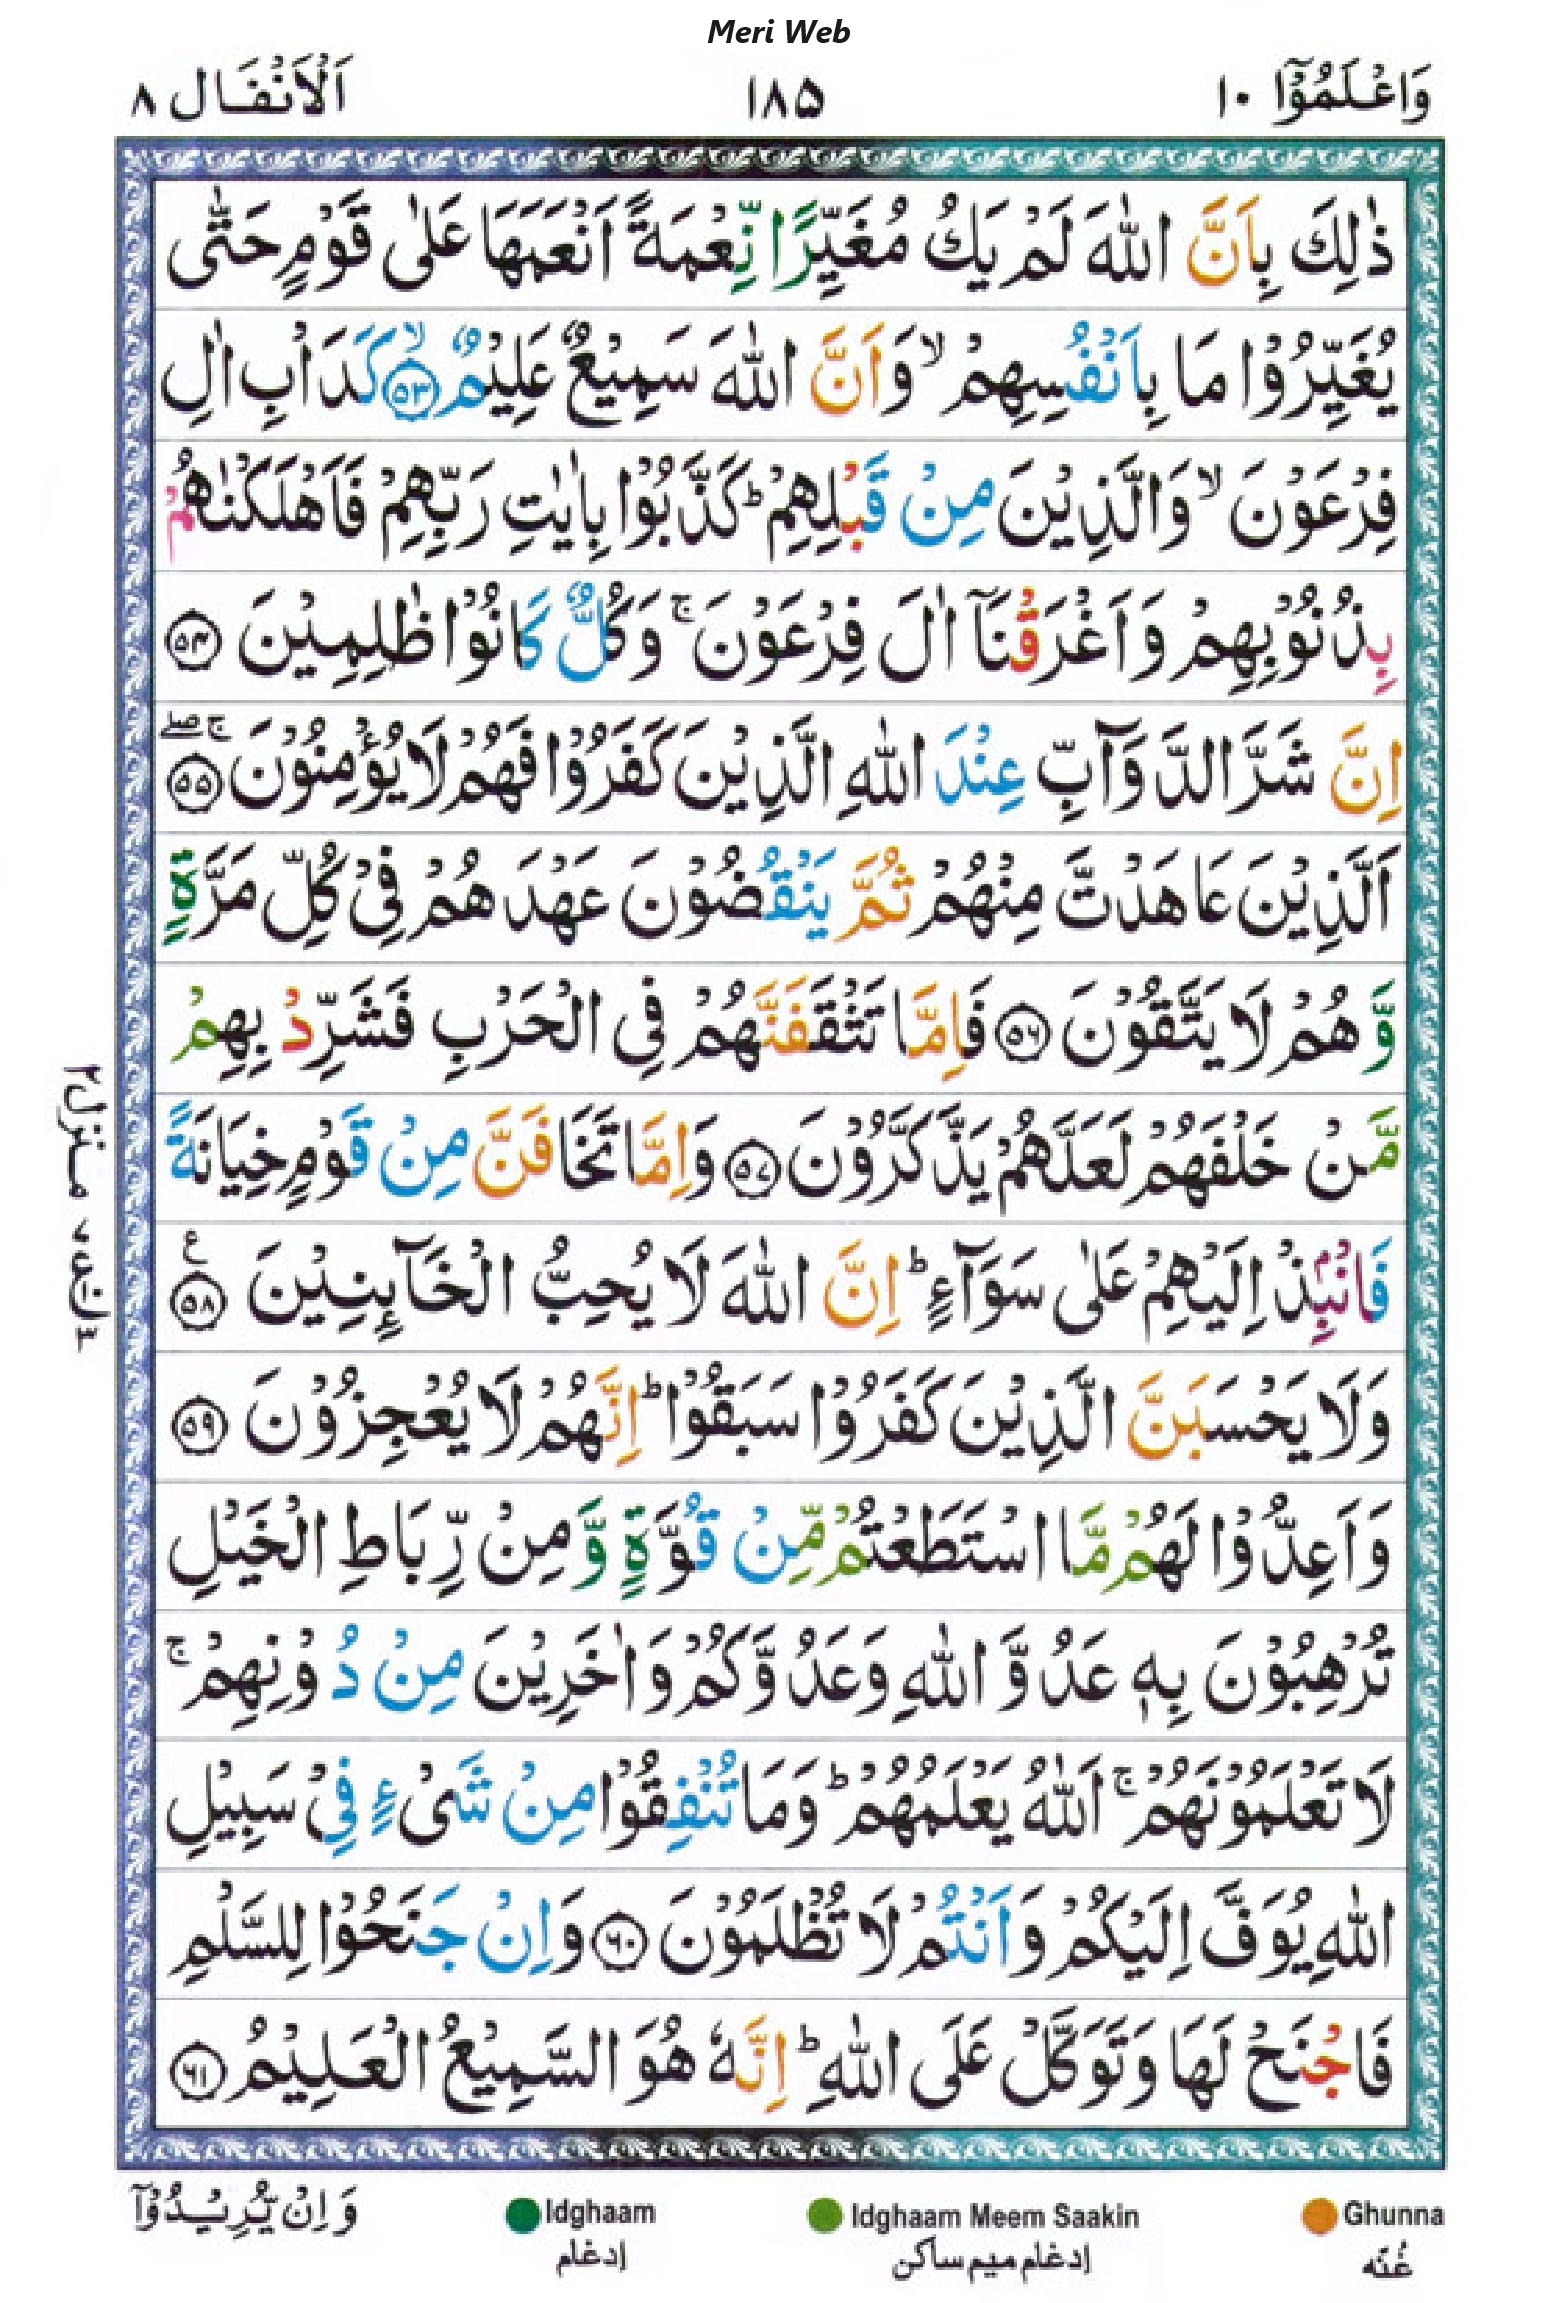 Meri Web
وَاعْلَمُوْٓا ١٠
١٨٥
اَلْاَنْفَال ٨
ذٰلِكَ بِاَنَّ اللّٰهَ لَمْ يَكُ مُغَيِّرًا نِّعْمَةً اَنْعَمَهَا عَلٰى قَوْمٍ حَتّٰى
يُغَيِّرُوْا مَا بِاَنْفُسِهِمْ ۙ وَاَنَّ اللّٰهَ سَمِيْعٌ عَلِيْمٌ ۙ ﴿٥٣﴾ كَدَاْبِ اٰلِ
فِرْعَوْنَ ۙ وَالَّذِيْنَ مِنْ قَبْلِهِمْ ؕ كَذَّبُوْا بِاٰيٰتِ رَبِّهِمْ فَاَهْلَكْنٰهُمْ
بِذُنُوْبِهِمْ وَاَغْرَقْنَآ اٰلَ فِرْعَوْنَ ۚ وَكُلٌّ كَانُوْا ظٰلِمِيْنَ ﴿٥٤﴾
اِنَّ شَرَّ الدَّوَآبِّ عِنْدَ اللّٰهِ الَّذِيْنَ كَفَرُوْا فَهُمْ لَا يُؤْمِنُوْنَ ۖۚ ﴿٥٥﴾
اَلَّذِيْنَ عَاهَدْتَّ مِنْهُمْ ثُمَّ يَنْقُضُوْنَ عَهْدَهُمْ فِيْ كُلِّ مَرَّةٍ
وَّهُمْ لَا يَتَّقُوْنَ ﴿٥٦﴾ فَاِمَّا تَثْقَفَنَّهُمْ فِى الْحَرْبِ فَشَرِّدْ بِهِمْ
مَّنْ خَلْفَهُمْ لَعَلَّهُمْ يَذَّكَّرُوْنَ ﴿٥٧﴾ وَاِمَّا تَخَافَنَّ مِنْ قَوْمٍ خِيَانَةً
فَانْۢبِذْ اِلَيْهِمْ عَلٰى سَوَآءٍ ؕ اِنَّ اللّٰهَ لَا يُحِبُّ الْخَآىِٕنِيْنَ ﴿٥٨﴾ ع
وَلَا يَحْسَبَنَّ الَّذِيْنَ كَفَرُوْا سَبَقُوْا ؕ اِنَّهُمْ لَا يُعْجِزُوْنَ ﴿٥٩﴾
وَاَعِدُّوْا لَهُمْ مَّا اسْتَطَعْتُمْ مِّنْ قُوَّةٍ وَّمِنْ رِّبَاطِ الْخَيْلِ
تُرْهِبُوْنَ بِهٖ عَدُوَّ اللّٰهِ وَعَدُوَّكُمْ وَاٰخَرِيْنَ مِنْ دُوْنِهِمْ ۚ
لَا تَعْلَمُوْنَهُمْ ۚ اَللّٰهُ يَعْلَمُهُمْ ؕ وَمَا تُنْفِقُوْا مِنْ شَىْءٍ فِيْ سَبِيْلِ
اللّٰهِ يُوَفَّ اِلَيْكُمْ وَاَنْتُمْ لَا تُظْلَمُوْنَ ﴿٦٠﴾ وَاِنْ جَنَحُوْا لِلسَّلْمِ
فَاجْنَحْ لَهَا وَتَوَكَّلْ عَلَى اللّٰهِ ؕ اِنَّهٗ هُوَ السَّمِيْعُ الْعَلِيْمُ ﴿٦١﴾
منزل ٢
وَاِنْ يُّرِيْدُوْٓا
Idghaam
ادغام
Idghaam Meem Saakin
ادغام میم ساکن
Ghunna
غُنّه